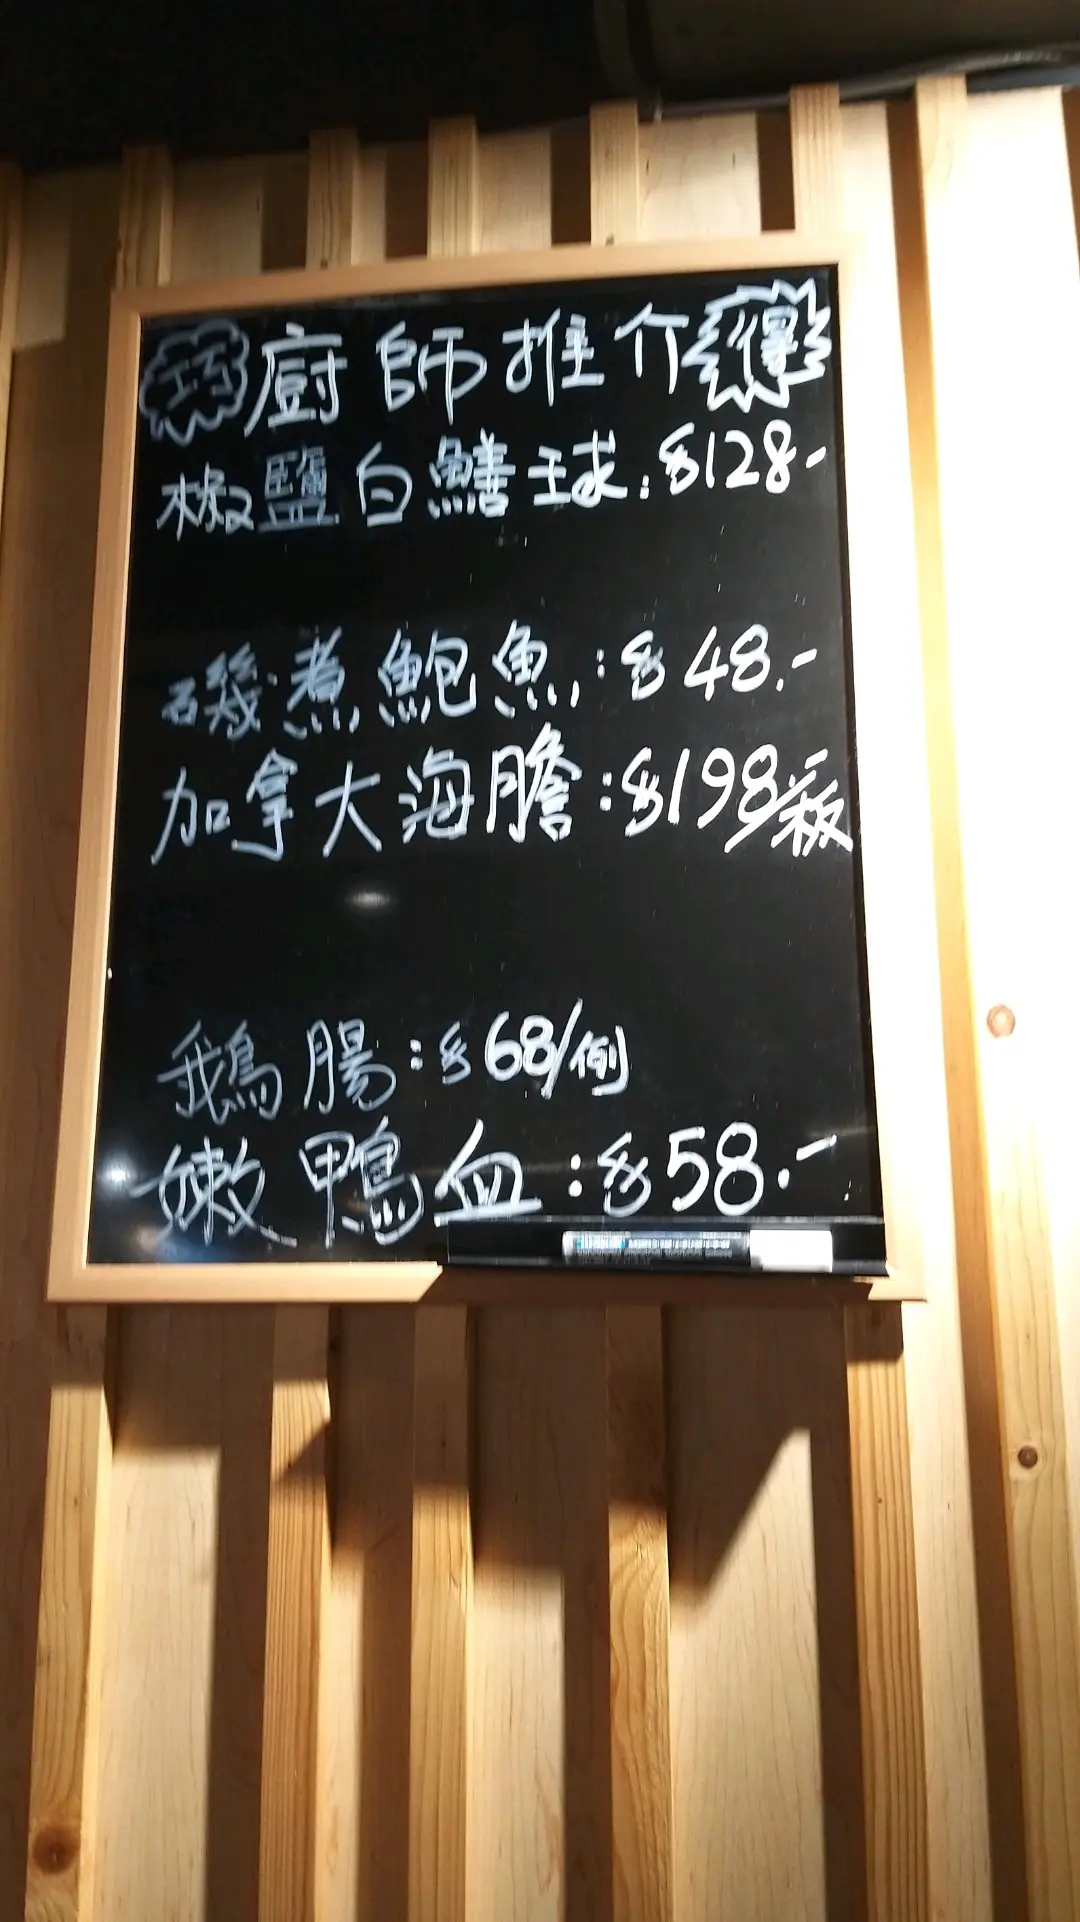 巧 廚師推介 得
椒鹽白鱔球:$128-
磯煮鮑魚:$48.-
加拿大海膽:$198/板
鵝腸:$68/例
嫩鴨血:$58.-